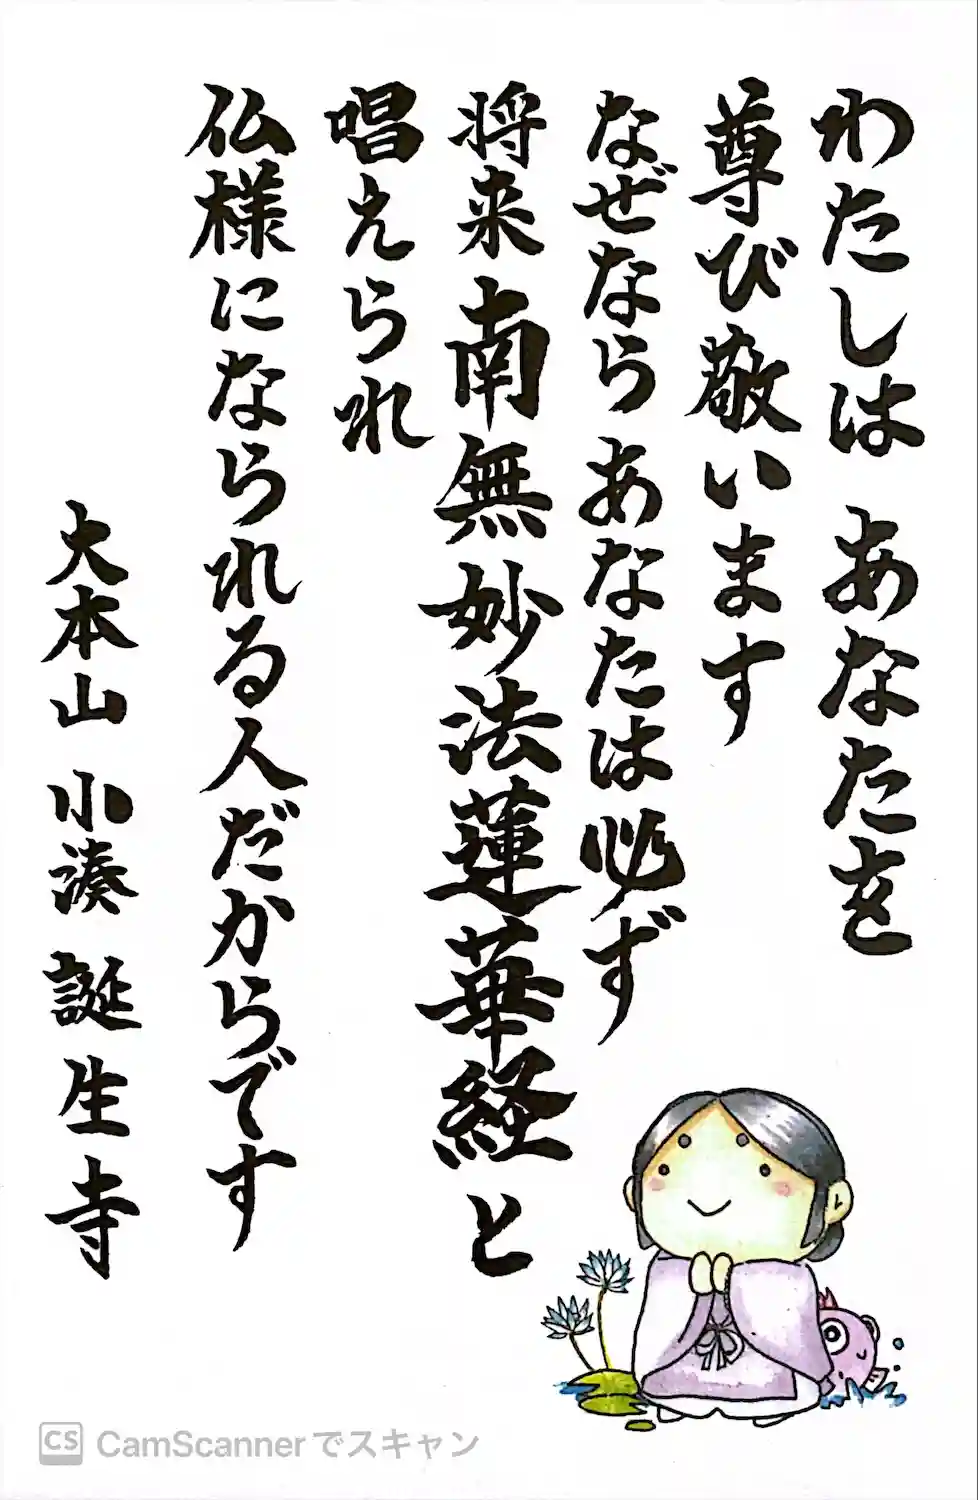 わたしは あなたを
尊び敬います
なぜなら あなたは必ず
将来 南無妙法蓮華経と
唱えられ
仏様になられる人だからです
大本山 小湊 誕生寺
CS CamScannerでスキャン